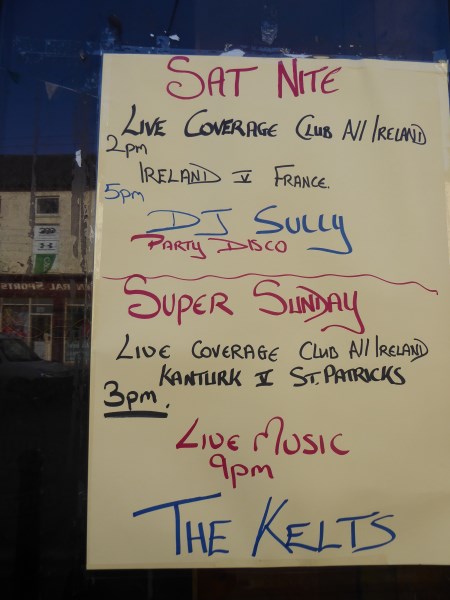 SAT NITE
LIVE COVERAGE CLUB All IRELAND
2pm
IRELAND V FRANCE.
5pm
DJ SULLY
PARTY DISCO
SUPER SUNDAY
LIVE COVERAGE CLUB All IRELAND
KANTURK V ST. PATRICKS
3pm.
LIVE MUSIC
9pm
THE KELTS